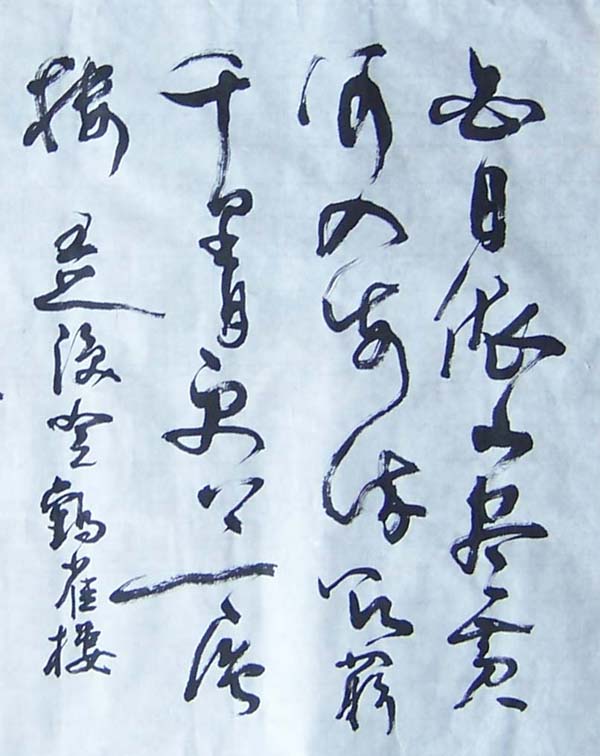 白日依山尽黄
河入海流欲窮
千里目更上一層
楼 王之渙登鶴雀楼